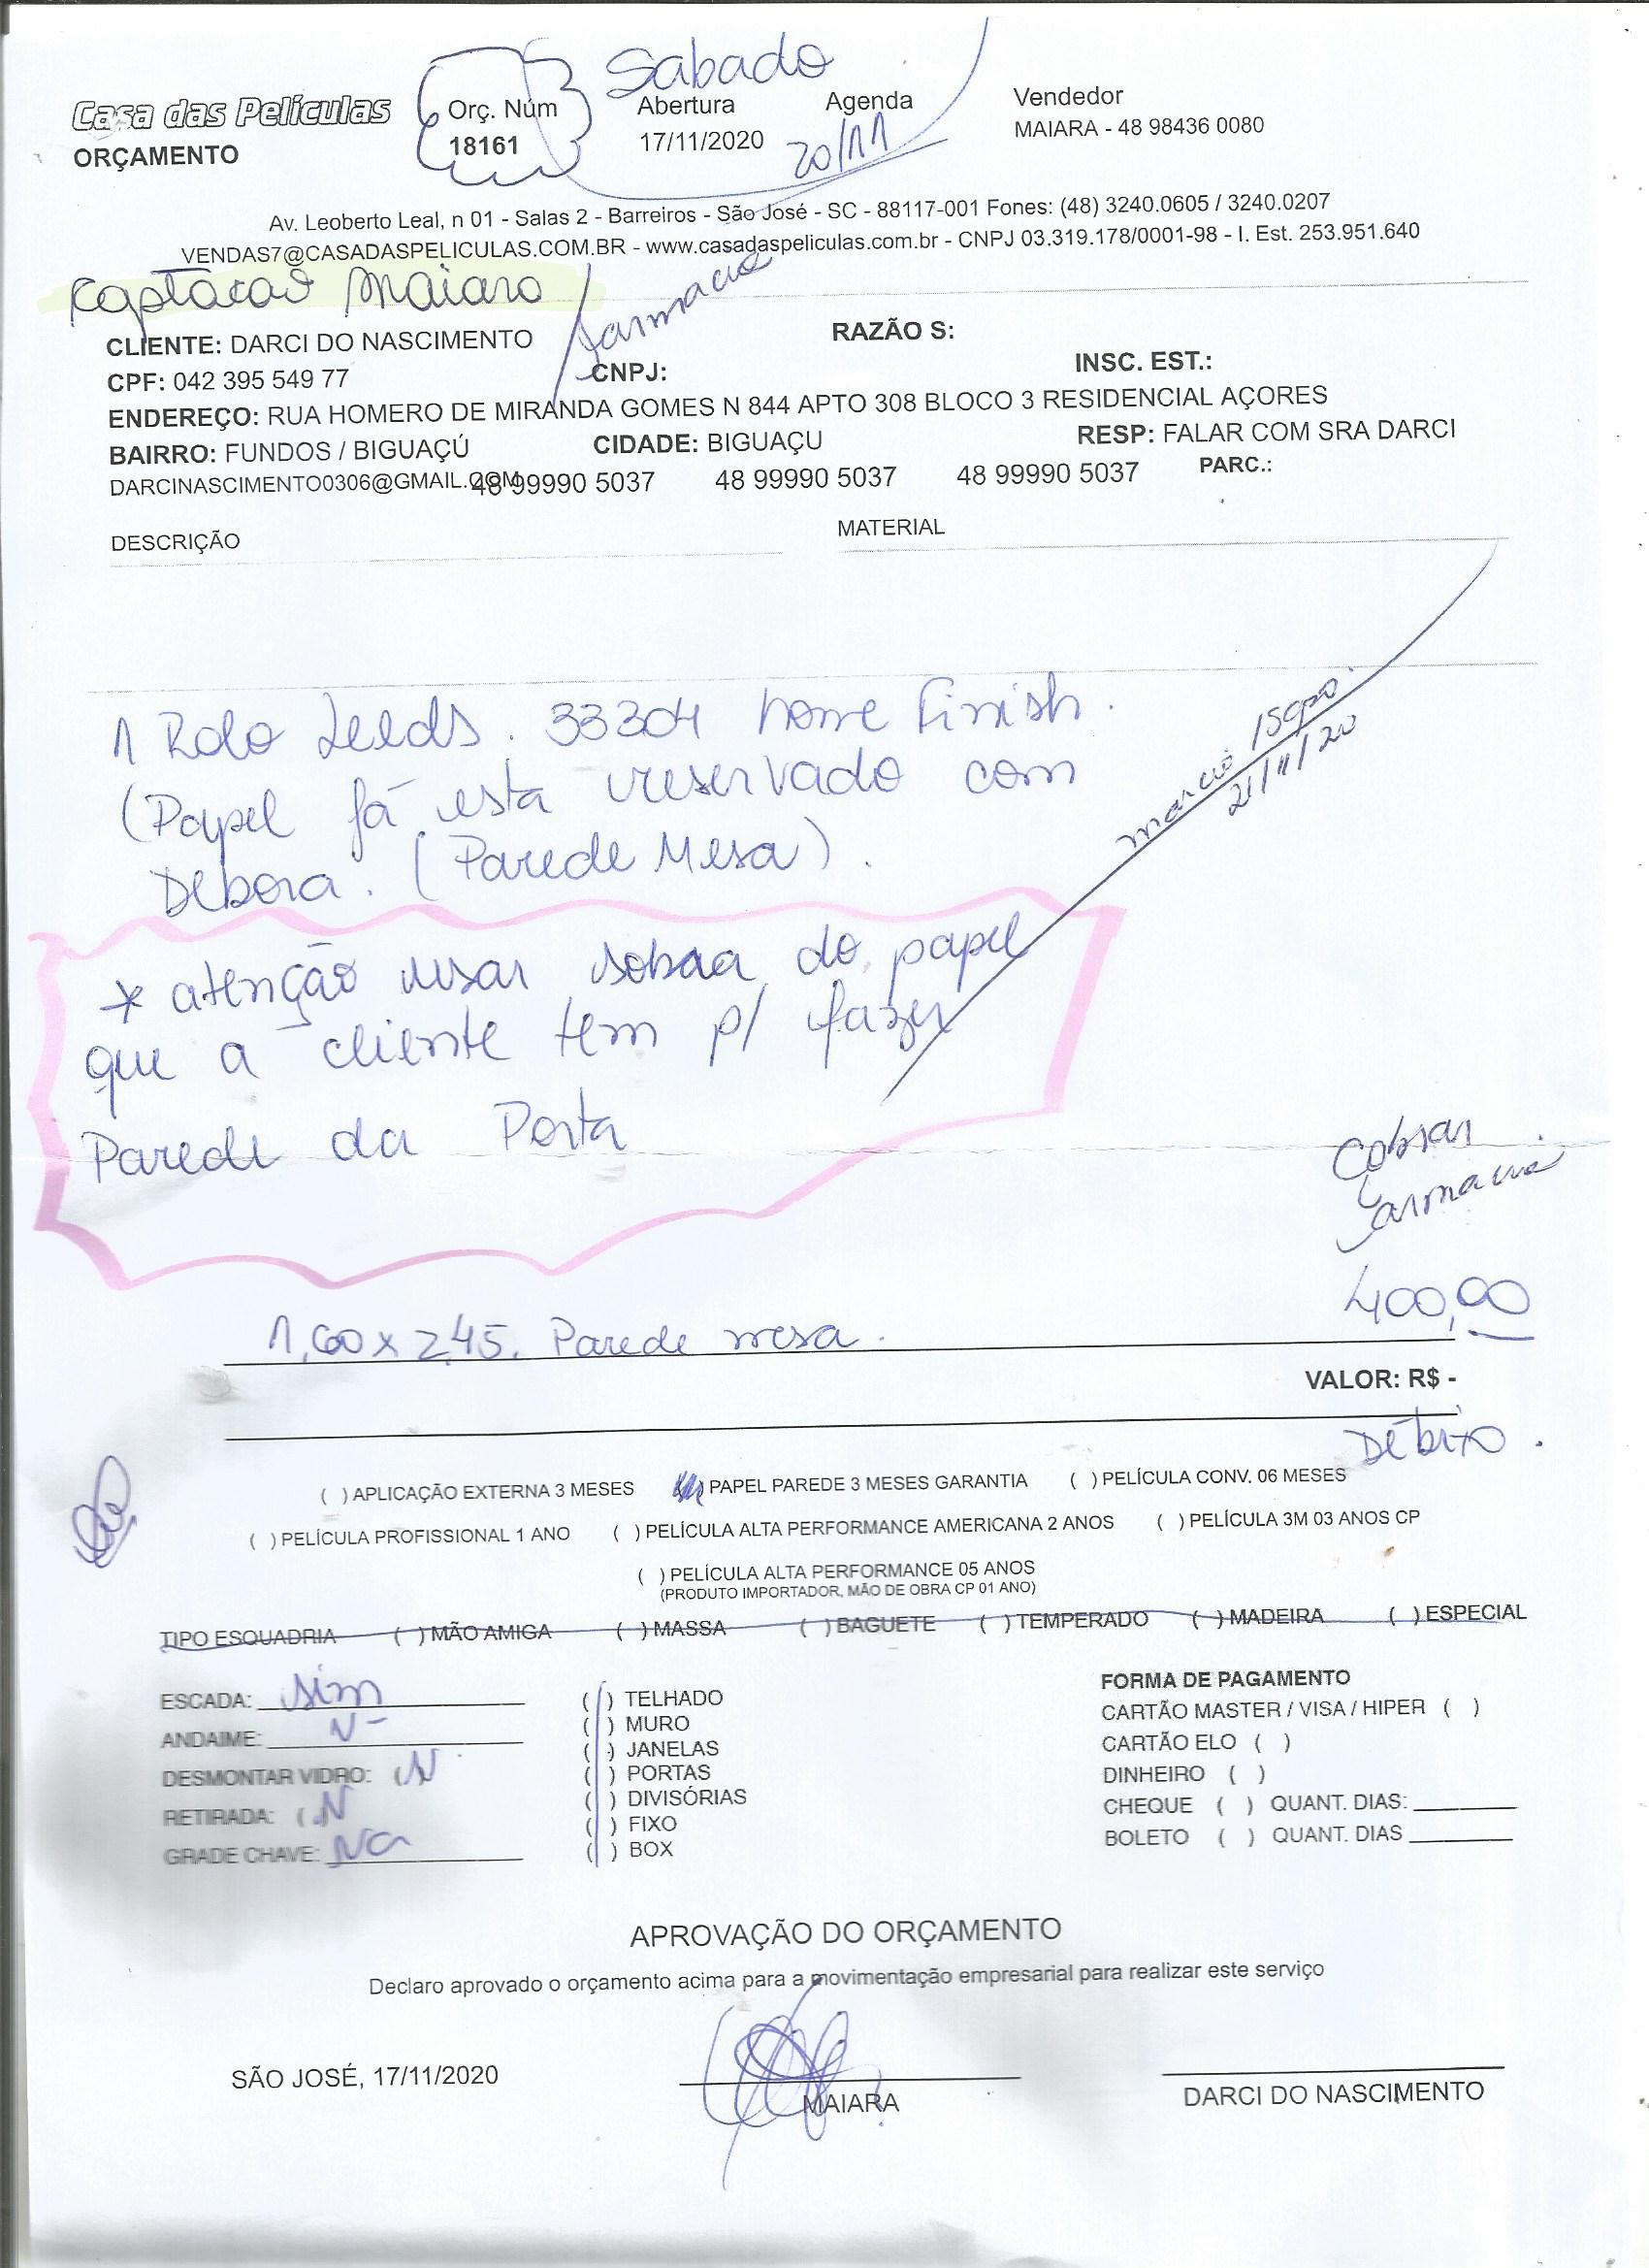 Sabado
Casa das Películas
Orç. Núm
Abertura
Agenda
Vendedor
ORÇAMENTO
18161
17/11/2020
20/11
MAIARA - 48 98436 0080
Av. Leoberto Leal, n 01 - Salas 2 - Barreiros - São José - SC - 88117-001 Fones: (48) 3240.0605 / 3240.0207
VENDAS7@CASADASPELICULAS.COM.BR - www.casadaspeliculas.com.br - CNPJ 03.319.178/0001-98 - I. Est. 253.951.640
Captacao Maiara / farmacia
CLIENTE: DARCI DO NASCIMENTO
RAZÃO S:
CPF: 042 395 549 77
CNPJ:
INSC. EST.:
ENDEREÇO: RUA HOMERO DE MIRANDA GOMES N 844 APTO 308 BLOCO 3 RESIDENCIAL AÇORES
BAIRRO: FUNDOS / BIGUAÇÚ
CIDADE: BIGUAÇU
RESP: FALAR COM SRA DARCI
DARCINASCIMENTO0306@GMAIL.COM
48 99990 5037
48 99990 5037
48 99990 5037
PARC.:
DESCRIÇÃO
MATERIAL
1 Rolo Leeds. 33304 home Finish.
(Papel já esta reservado com
Debora. (Parede Mesa).
marcio
21/11/20
* atenção usar sobra do papel
que a cliente tem p/ fazer
Parede da Porta
Cobrar
farmacia
400,00
1,60 x 2,45. Parede mesa.
VALOR: R$ -
Débito.
( ) APLICAÇÃO EXTERNA 3 MESES
PAPEL PAREDE 3 MESES GARANTIA
( ) PELÍCULA CONV. 06 MESES
( ) PELÍCULA PROFISSIONAL 1 ANO
( ) PELÍCULA ALTA PERFORMANCE AMERICANA 2 ANOS
( ) PELÍCULA 3M 03 ANOS CP
( ) PELÍCULA ALTA PERFORMANCE 05 ANOS
(PRODUTO IMPORTADOR, MÃO DE OBRA CP 01 ANO)
TIPO ESQUADRIA ( ) MÃO AMIGA ( ) MASSA ( ) BAGUETE ( ) TEMPERADO ( ) MADEIRA ( ) ESPECIAL
ESCADA: sim
ANDAIME: N -
DESMONTAR VIDRO: (N
RETIRADA: ( N
GRADE CHAVE: Na
( ) TELHADO
( ) MURO
( ) JANELAS
( ) PORTAS
( ) DIVISÓRIAS
( ) FIXO
( ) BOX
FORMA DE PAGAMENTO
CARTÃO MASTER / VISA / HIPER ( )
CARTÃO ELO ( )
DINHEIRO ( )
CHEQUE ( ) QUANT. DIAS:
BOLETO ( ) QUANT. DIAS
APROVAÇÃO DO ORÇAMENTO
Declaro aprovado o orçamento acima para a movimentação empresarial para realizar este serviço
SÃO JOSÉ, 17/11/2020
MAIARA
DARCI DO NASCIMENTO